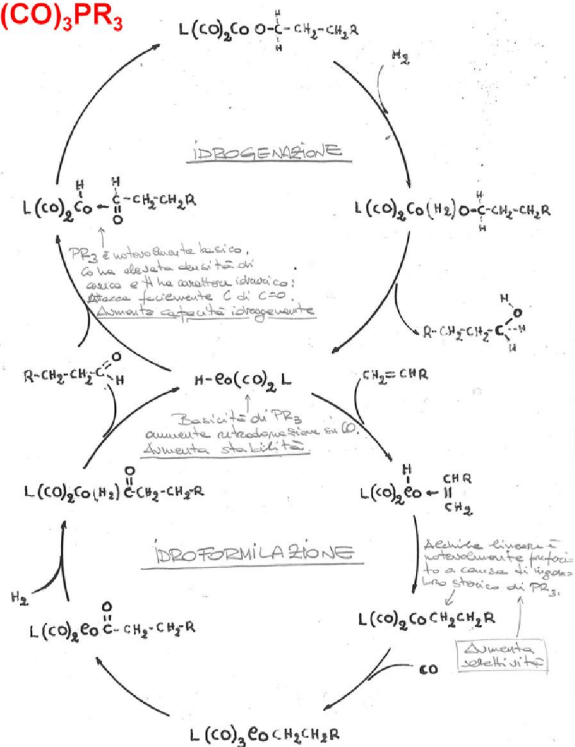 (CO)3PR3
L(CO)2Co O-C-CH2-CH2R
H
H
H2
IDROGENAZIONE
H H
L(CO)2Co ← C-CH2-CH2R
O
L(CO)2Co(H2)O-C-CH2-CH2R
H
H
PR3 è notevolmente basico,
Co ha elevata densità di
carica e H ha carattere idrurico:
attacca facilmente C di C=O.
Aumenta capacità idrogenante
H
O
R-CH2-CH2-C--H
H
O
R-CH2-CH2-C
H
H-Co(CO)2 L
CH2=CHR
Basicità di PR3
aumenta retrodonazione su CO.
Aumenta stabilità
O
L(CO)2Co(H2) C-CH2-CH2-R
H
L(CO)2Co ← CHR
CH2
IDROFORMILAZIONE
Alchile lineare è
notevolmente preferi-
to a causa di ingom-
bro sterico di PR3.
H2
O
L(CO)2Co C-CH2-CH2-R
L(CO)2CoCH2CH2R
Aumenta
selettività
CO
L(CO)3CoCH2CH2R